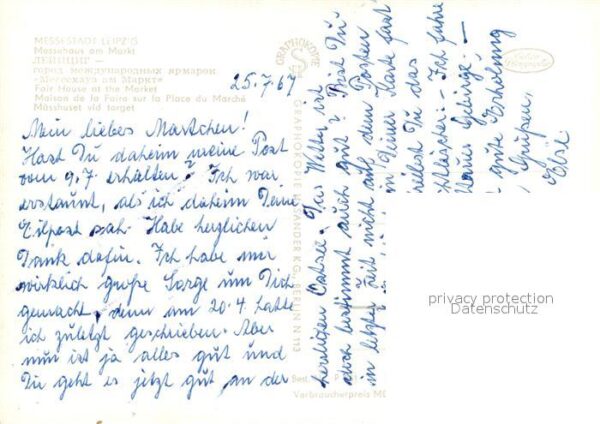 MESSESTADT LEIPZIG
Messehaus am Markt
ЛЕЙПЦИГ —
город международных ярмарок
«Мессехауз ам Маркт»
Fair House at the Market
Maison de la Foire sur la Place du Marché
Mässhuset vid torget
25.7.67
Mein liebes Martchen!
Hast Du daheim meine Post
vom 9.7 erhalten? Ich war
erstaunt, als ich daheim Deine
Eilpost sah. Habe herzlichen
Dank dafür. Ich habe mir
wirklich große Sorge um Dich
gemacht, denn am 20.4. hatte
ich zuletzt geschrieben. Aber
nun ist ja alles gut und
Dir geht es jetzt gut an der
herrlichen Ostsee. Das Wetter ist
doch bestimmt auch gut? Bist Du
in letzter Zeit nicht auf dem Posten
in Deiner Karte fast
teilst Du das
- Ich fahre
Gebirge. -
gute Erholung
Grüßen,
Else
GRAPHOKOPIE
GRAPHOKOPIE H. SANDER K.G., BERLIN N 113
Best
Verbraucherpreis MD
privacy protection
Datenschutz